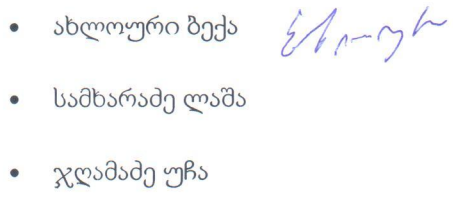 • ახლოური ბექა
• სამხარაძე ლაშა
• ჯღამაძე უჩა